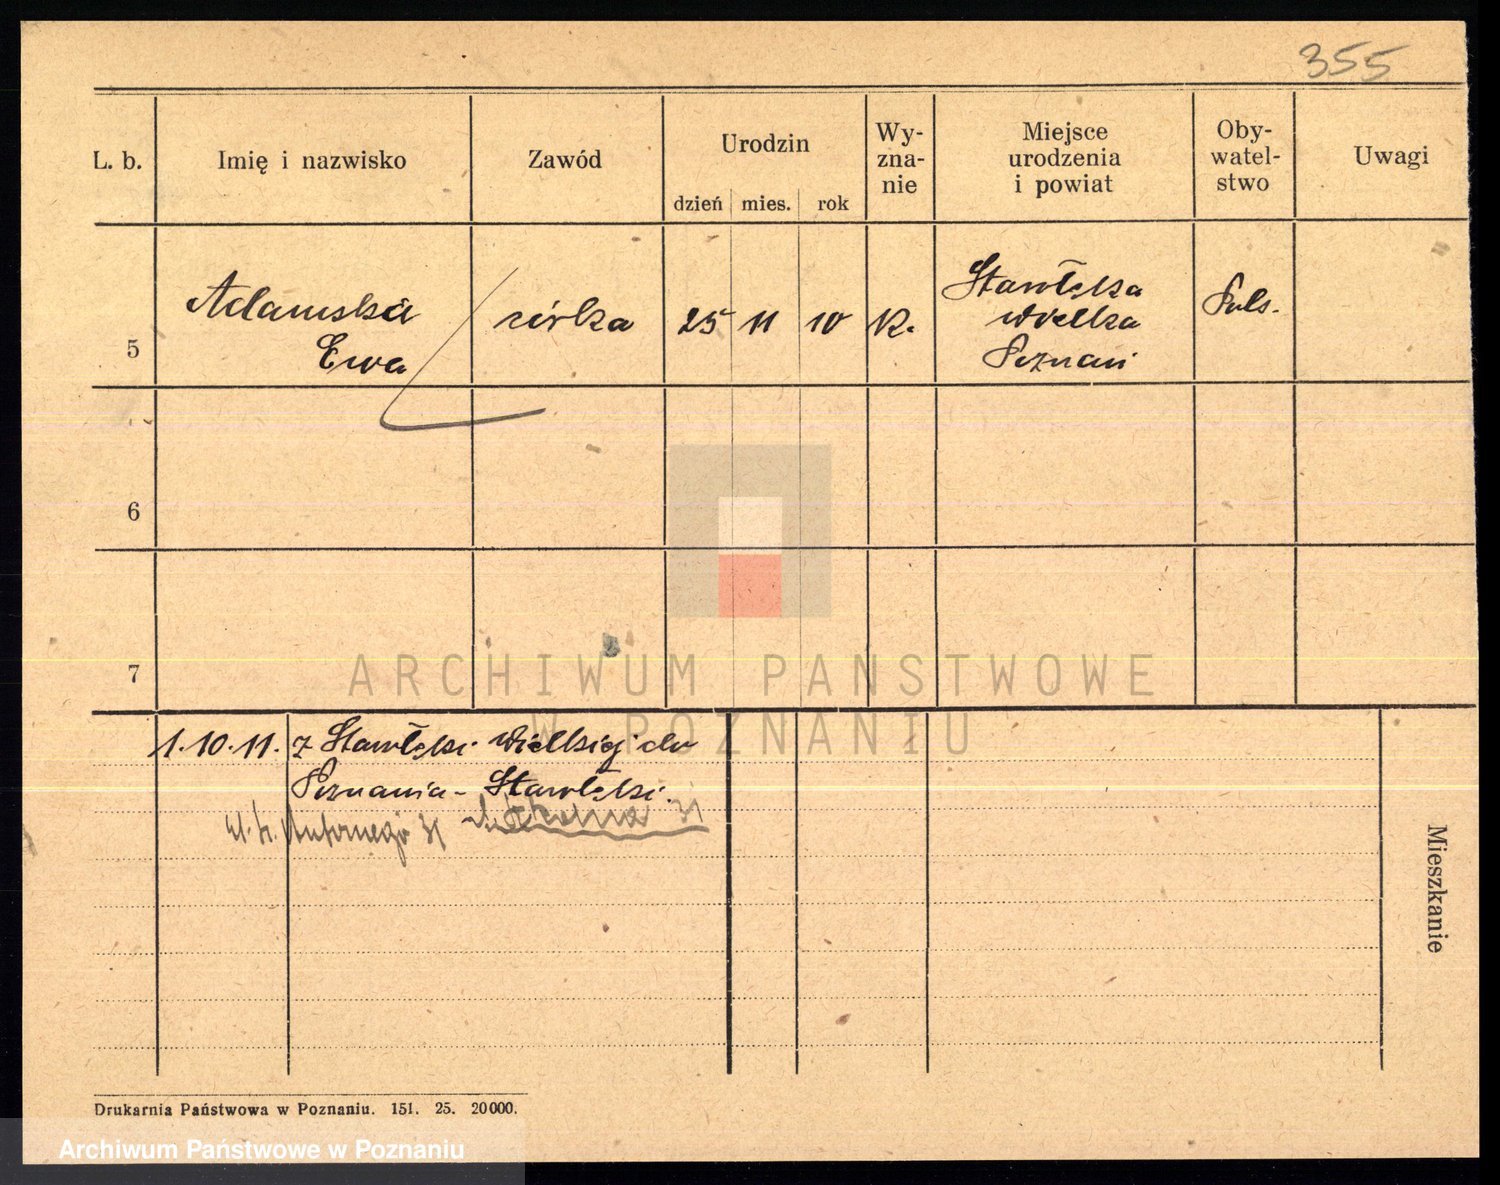 355
L. b. Imię i nazwisko Zawód Urodzin dzień mies. rok Wy-zna-nie Miejsce urodzenia i powiat Oby-watel-stwo Uwagi
5 Adamska Ewa córka 25 11 10 K. Starołęka Wielka Poznań Pols.
6
7
ARCHIWUM PAŃSTWOWE
W POZNANIU
1.10.11. z Starołęki Wielkiej do
Poznania - Starołęki.
ul. św. Antoniego 31 31
Mieszkanie
Drukarnia Państwowa w Poznaniu. 151. 25. 20000.
Archiwum Państwowe w Poznaniu